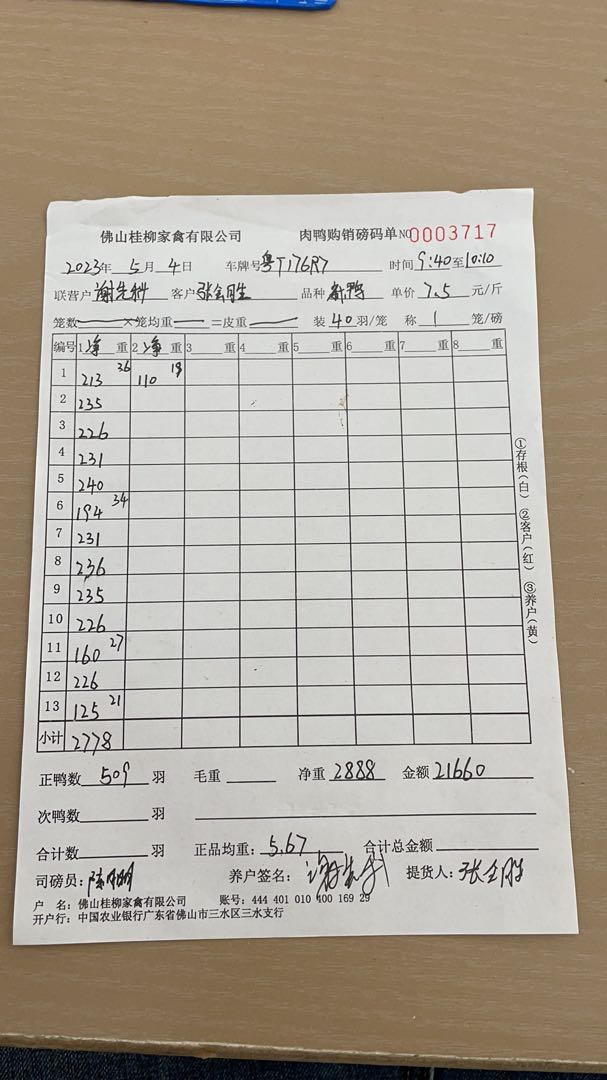 佛山桂柳家禽有限公司 肉鸭购销磅码单 NO 0003717
2023年 5月 4日 车牌号 粤T176R7 时间 9:40至10:10
联营户 谢先科 客户 张全胜 品种 单价 7.5 元/斤
笼数 ×笼均重 =皮重 装 40 羽/笼 称 1 笼/磅
编号 1 净 重 2 净 重 3 重 4 重 5 重 6 重 7 重 8 重
1 213 36 110 19
2 235
3 226
4 231
5 240
6 194 34
7 231
8 236
9 235
10 226
11 160 27
12 226
13 125 21
小计 2778
正鸭数 509 羽 毛重 净重 2888 金额 21660
次鸭数 羽
合计数 羽 正品均重: 5.67 合计总金额
司磅员: 养户签名: 提货人: 张全胜
户 名: 佛山桂柳家禽有限公司 账号: 444 401 010 400 169 29
开户行: 中国农业银行广东省佛山市三水区三水支行
①存根(白) ②客户(红) ③养户(黄)